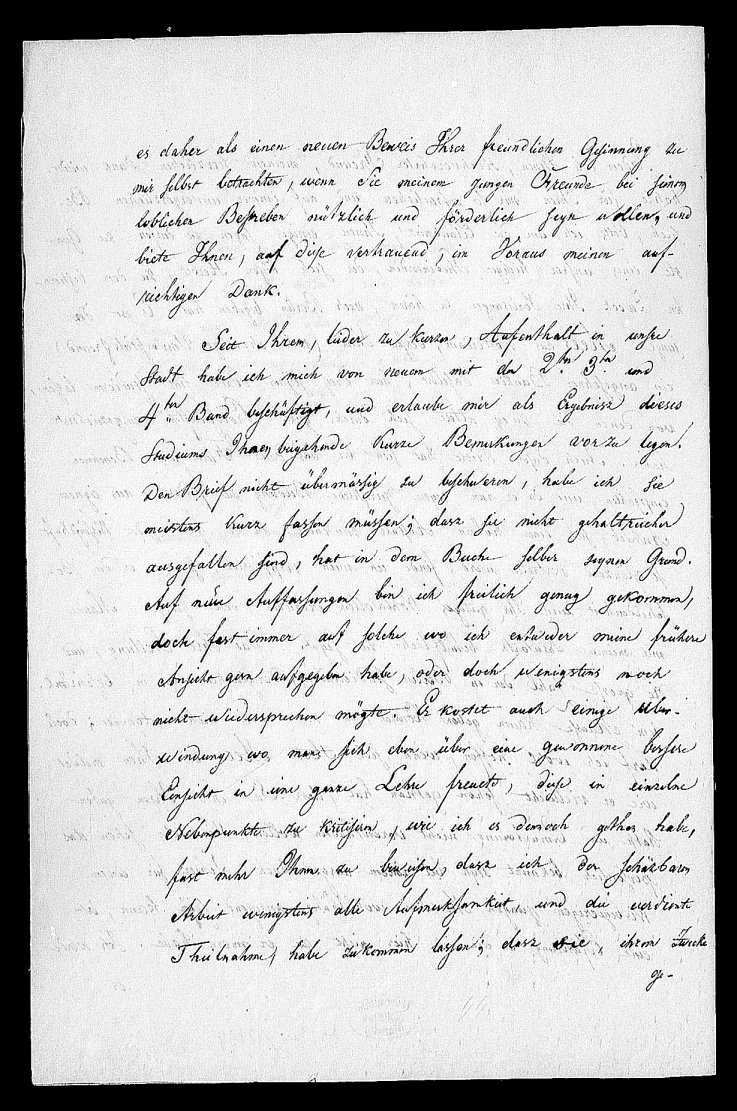 es daher als einen neuen Beweis Ihrer freundlichen Gesinnung zu
mir selbst betrachten, wenn Sie meinem jungen Freunde bei seinem
löblichen Bestreben nützlich und förderlich seyn wollen, und
biete Ihnen, auf diese vertrauend, im Voraus meinen auf-
richtigen Dank.
Seit Ihrem, leider zu kurzen, Aufenthalt in unsre
Stadt habe ich mich von neuem mit dem 2.ten 3.ten und
4ten Band beschäftigt, und erlaube mir als Ergebnisz dieses
Studiums Ihnen beigehende kurze Bemerkungen vorzulegen.
Den Brief nicht übermässig zu beschweren, habe ich Sie
meistens kurz fassen müssen; dasz sie nicht gehaltreicher
ausgefallen sind, hat in dem Buche selber seynen Grund.
Auf neue Auffassungen bin ich freilich genug gekommen,
doch fast immer auf solche wo ich entweder meine frühere
Ansicht gern aufgegeben habe, oder doch wenigstens noch
nicht wiedersprechen mögte. Er kostet auch einige Über-
windung wo man sich eben über eine gewonnene bessere
Einsicht in eine ganze Lehre freute, diese in einzelne
Nebenpunkte zu kritisiren, wie ich es dennoch gethan habe,
fast mehr Ihnen zu beweisen, dasz ich der schäzbaren
Arbeit wenigstens alle Aufmerksamkeit und die verdiente
Theilnahme, habe zukommen lassen; dasz sie, ihrem Zwecke
ge-